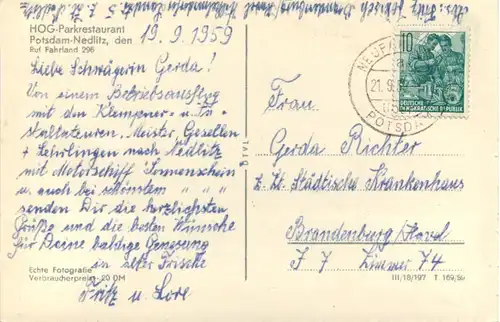 HOG-Parkrestaurant
Potsdam-Nedlitz, den 19.9.1959
Ruf Fahrland 296
Liebe Schwägerin Gerda!
Von einem Betriebsausflug
mit den Klempner- u. In-
stallateuren, Meister, Gesellen
+ Lehrlingen nach Nedlitz
mit Motorschiff Sonnenschein
u. auch bei schönstem " " "
senden Dir die herzlichsten
Grüße und die besten Wünsche
für Deine baldige Genesung
in alter Frische
Fritz u. Lore
Echte Fotografie
Verbraucherpreis -.20 DM
BTVL
21.9.
POTSDA
10
DEUTSCHE
DEMOKRATISCHE REPUBLIK
Frau
Gerda Richter
z. Zt. Städtische Krankenhaus
Brandenburg/Havel
F 7 Zimmer 74
III/18/197 T 169/59